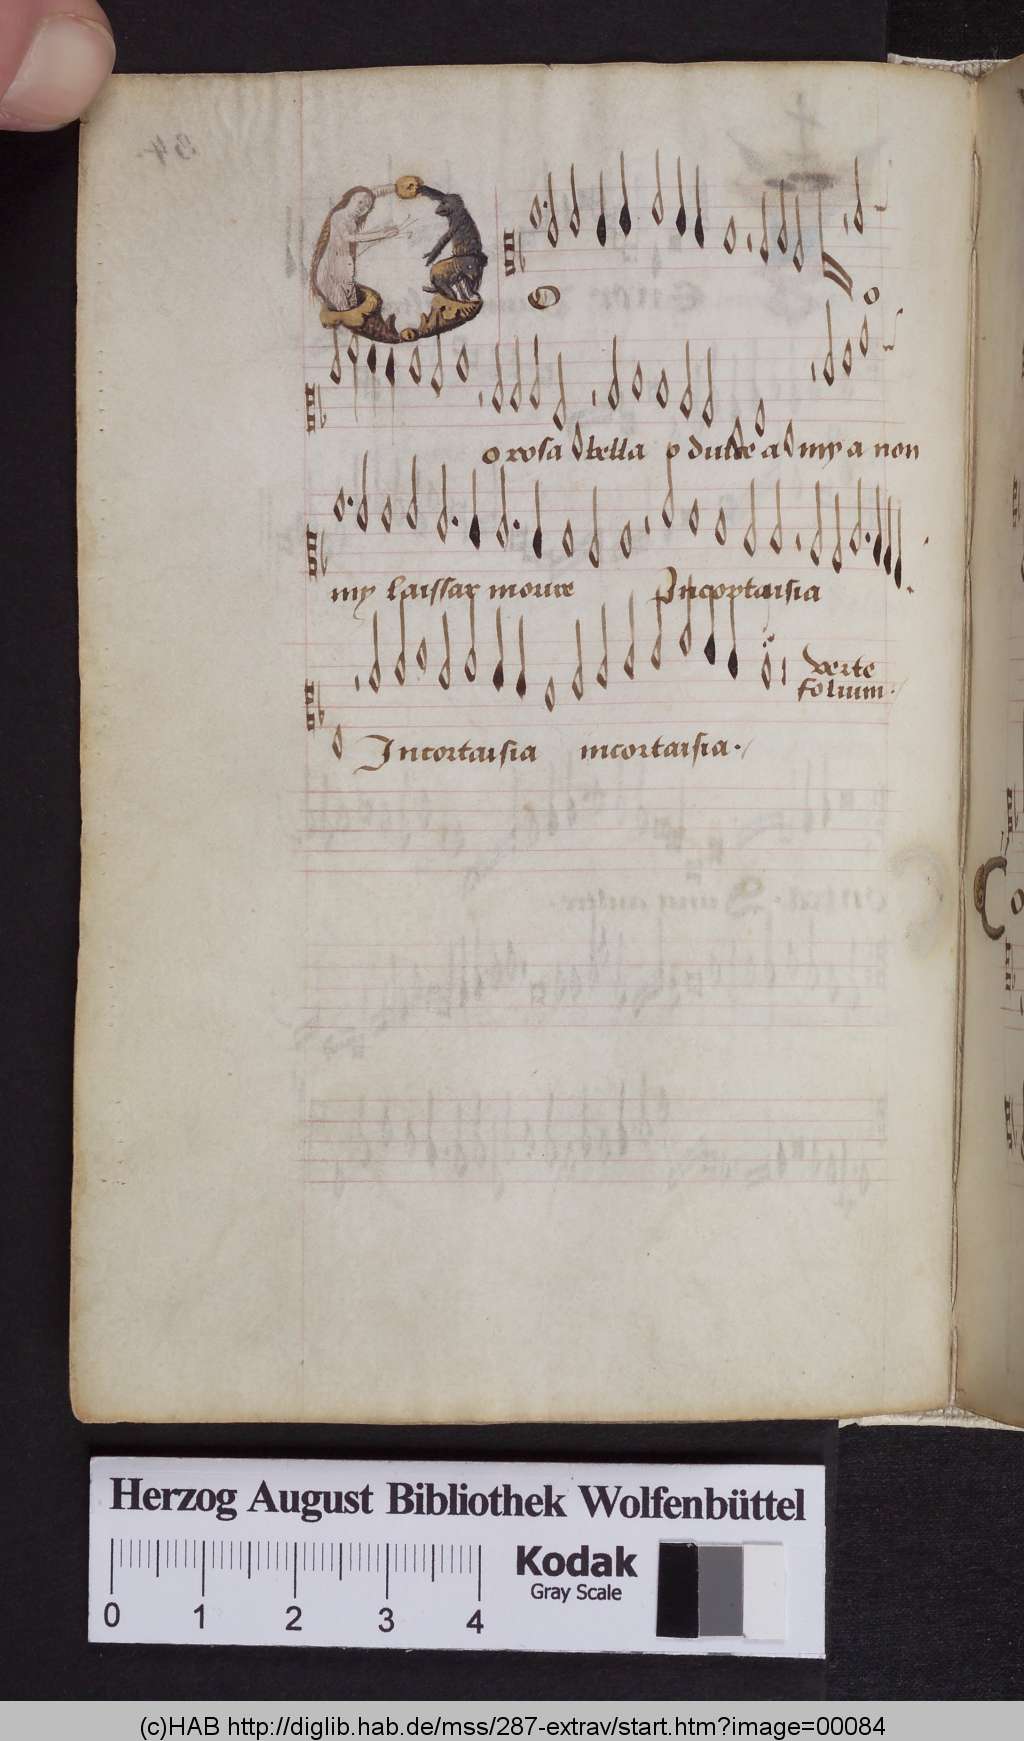 o rosa bella o dulce a my a non
my laissar morire In cortaisia
verte
folium
Incortaisia incortaisia
Herzog August Bibliothek Wolfenbüttel
0 1 2 3 4
Kodak
Gray Scale
(c)HAB http://diglib.hab.de/mss/287-extrav/start.htm?image=00084